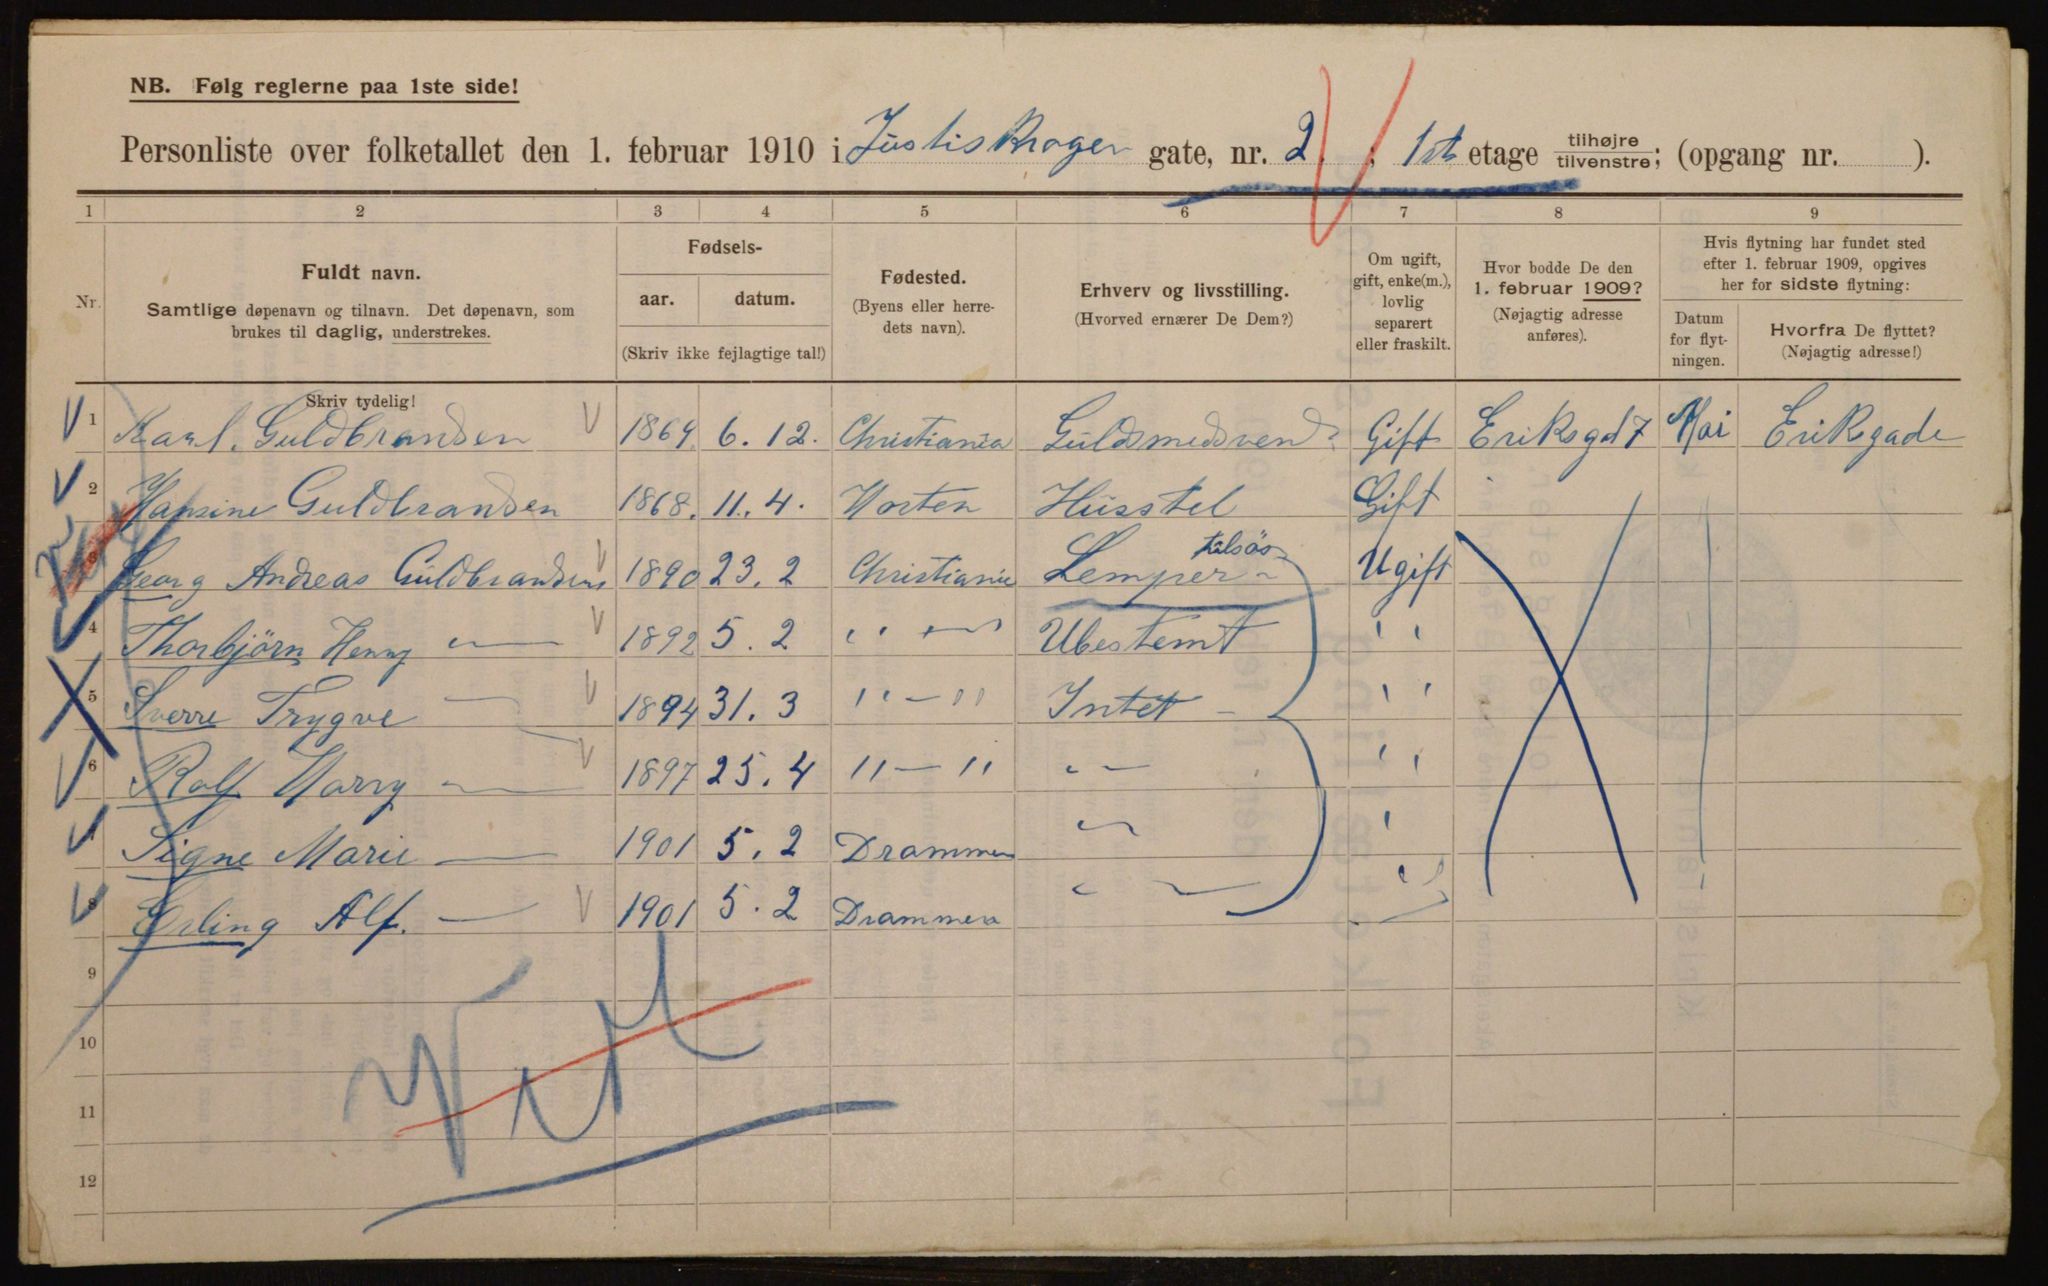 NB. Følg reglerne paa 1ste side!
Personliste over folketallet den 1. februar 1910 i Justiskroger gate, nr. 2. ; 1ste etage tilhøjre tilvenstre; (opgang nr. ).
1 2 3 4 5 6 7 8 9
Nr.
Fuldt navn.
Samtlige døpenavn og tilnavn. Det døpenavn, som
brukes til daglig, understrekes.
Skriv tydelig!
Fødsels-
aar. datum.
(Skriv ikke fejlagtige tal!)
Fødested.
(Byens eller herre-
dets navn).
Erhverv og livsstilling.
(Hvorved ernærer De Dem?)
Om ugift,
gift, enke(m.),
lovlig
separert
eller fraskilt.
Hvor bodde De den
1. februar 1909?
(Nøjagtig adresse
anføres).
Hvis flytning har fundet sted
efter 1. februar 1909, opgives
her for sidste flytning:
Datum
for flyt-
ningen.
Hvorfra De flyttet?
(Nøjagtig adresse!)
1 Karl. Guldbrandsen 1869 6. 12. Christiania Guldsmedsvend Gift Eriksgd 7 Mai Eriksgade
2 Hansine Guldbrandsen 1868. 11. 4. Horten Husstel Gift
3 Georg Andreas Guldbrandsen 1890 23. 2 Christiania Lemper Ugift
4 Thorbjörn Henry — 1892 5. 2 " — " Ubestemt " "
5 Sverre Trygve — 1894 31. 3 " — " Intet — " "
6 Rolf Harry — 1897 25. 4 " — " " — " "
7 Signe Marie — 1901 5. 2 Drammen " "
8 Erling Alf. — 1901 5. 2 Drammen " — "
9
10
11
12